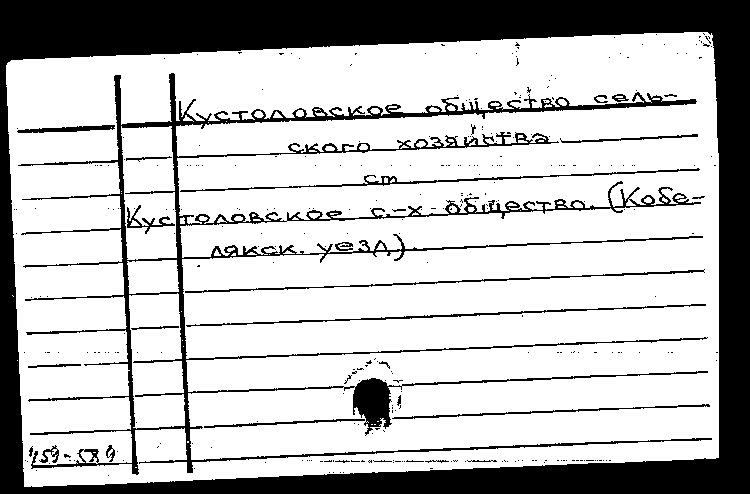 Кустоловское общество сель-
ского хозяйства
см
Кустоловское с.-х. общество. (Кобе-
лякск. уезд).
459-589